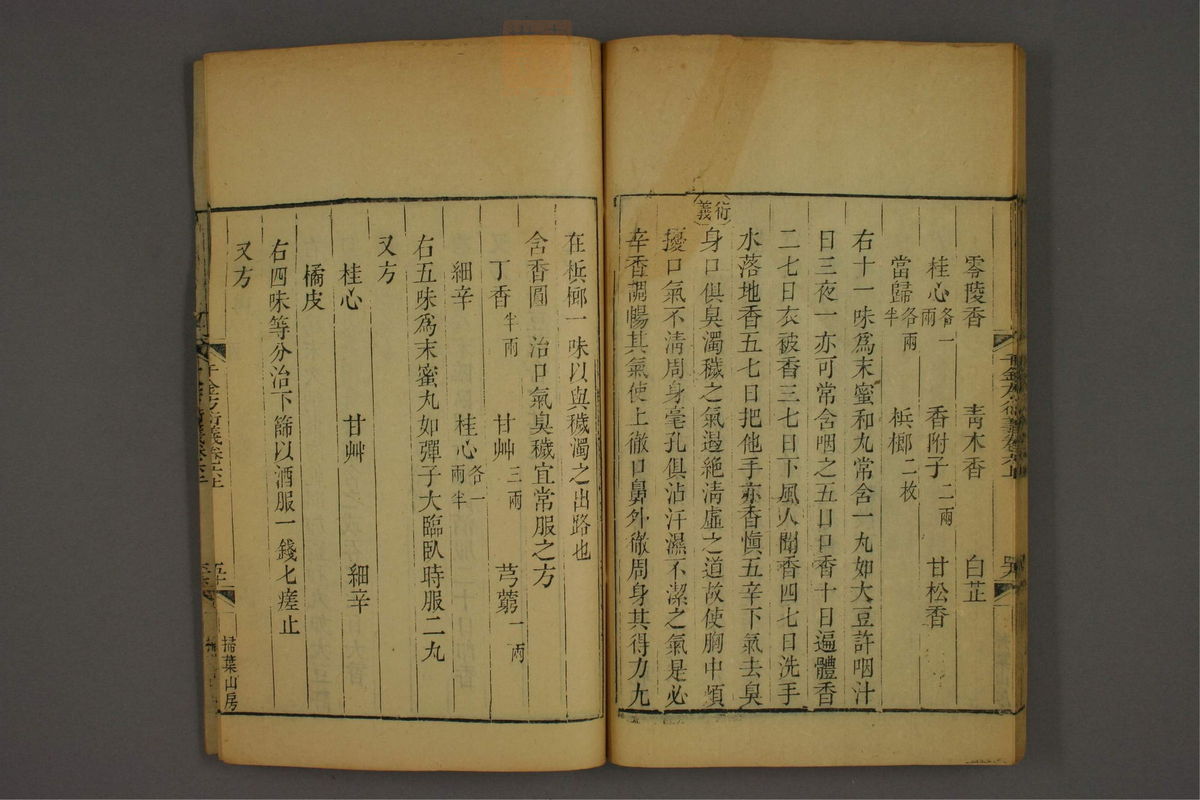 零陵香　青木香　白芷
桂心各一兩　香附子二兩　甘松香
當歸各半兩　梹榔二枚
右十一味爲末蜜和丸常含一丸如大豆許咽汁
日三夜一亦可常含咽之五日口香十日遍體香
二七日衣被香三七日下風人聞香四七日洗手
水落地香五七日把他手亦香愼五辛下氣去臭
衍義
身口俱臭濁穢之氣遏絕淸虛之道故使胸中煩
擾口氣不淸周身毫孔俱沾汗濕不潔之氣是必
辛香調暢其氣使上徹口鼻外徹周身其得力尢
在梹榔一味以與穢濁之出路也
含香圓　治口氣臭穢宜常服之方
丁香半兩　甘艸三兩　芎藭一兩
細辛　桂心各一兩半
右五味爲末蜜丸如彈子大臨臥時服二丸
又方
桂心　甘艸　細辛
橘皮
右四味等分治下篩以酒服一錢七瘥止
又方
千金方衍義卷六上
掃葉山房